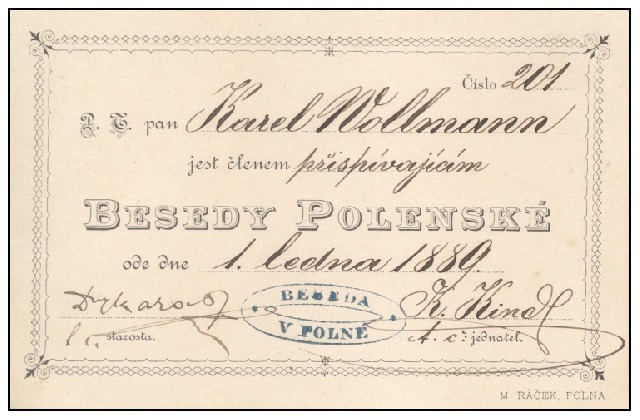 Číslo 201
P. T. pan Karel Wollmann
jest členem přispívajícím
BESEDY POLENSKÉ
ode dne 1. ledna 1889.
BESEDA
V POLNÉ
K. Kindl
starosta.
t. č. jednatel.
M. RÁČEK, POLNA